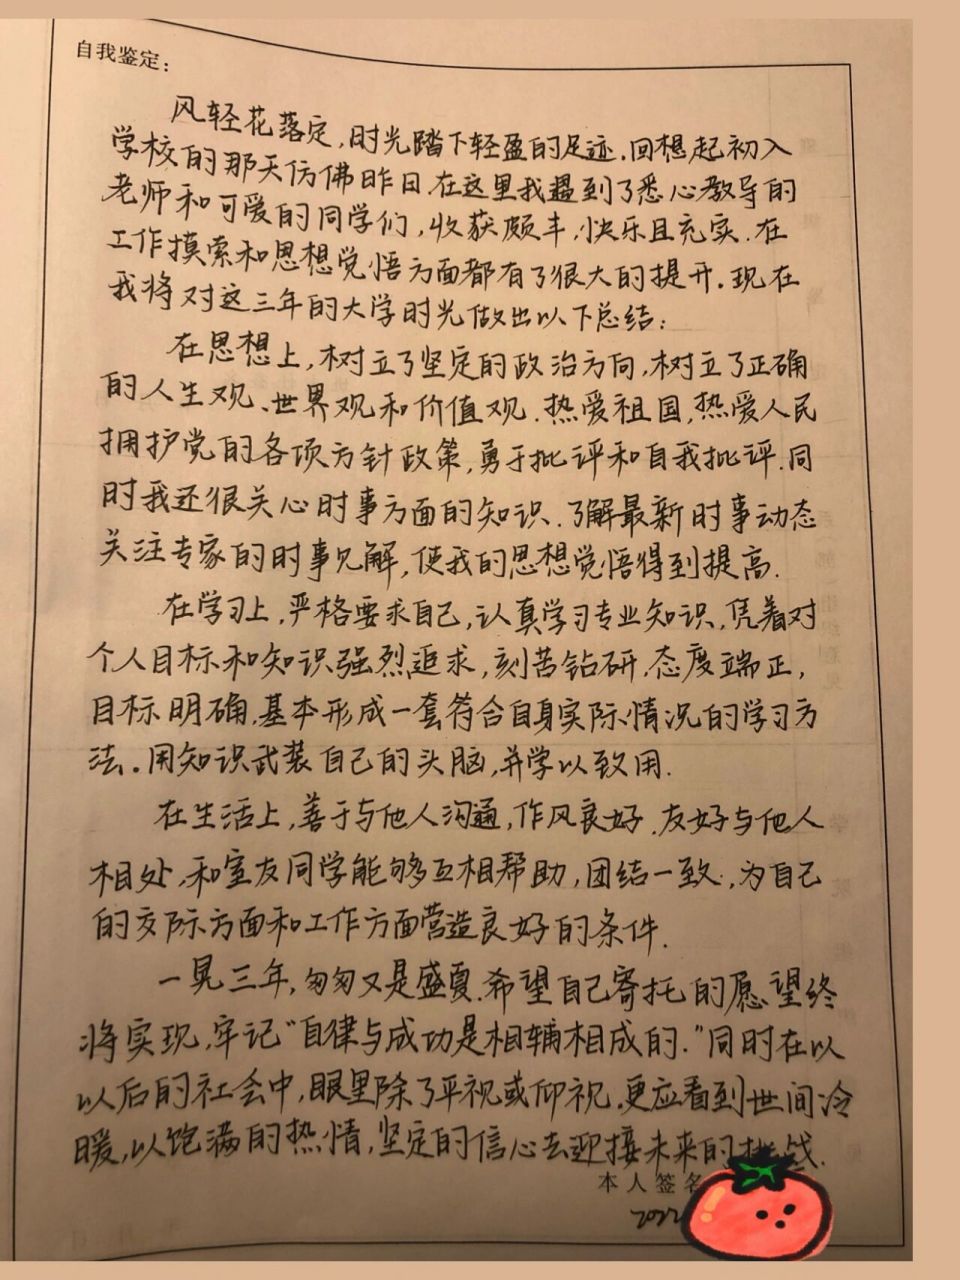 自我鉴定:
风轻花落定,时光踏下轻盈的足迹.回想起初入
学校的那天仿佛昨日.在这里我遇到了悉心教导的
老师和可爱的同学们,收获颇丰,快乐且充实.在
工作摸索和思想觉悟方面都有了很大的提升.现在
我将对这三年的大学时光做出以下总结:
在思想上,树立了坚定的政治方向,树立了正确
的人生观、世界观和价值观.热爱祖国,热爱人民
拥护党的各项方针政策,勇于批评和自我批评.同
时我还很关心时事方面的知识.了解最新时事动态
关注专家的时事见解,使我的思想觉悟得到提高.
在学习上,严格要求自己,认真学习专业知识,凭着对
个人目标和知识强烈追求,刻苦钻研,态度端正,
目标明确,基本形成一套符合自身实际情况的学习方
法.用知识武装自己的头脑,并学以致用.
在生活上,善于与他人沟通,作风良好.友好与他人
相处,和室友同学能够互相帮助,团结一致,为自己
的交际方面和工作方面营造良好的条件.
一晃三年,匆匆又是盛夏.希望自己寄托的愿望终
将实现,牢记“自律与成功是相辅相成的.”同时在以
以后的社会中,眼里除了平视或仰视,更应看到世间冷
暖,以饱满的热情,坚定的信心去迎接未来的挑战.
本人签名
2022